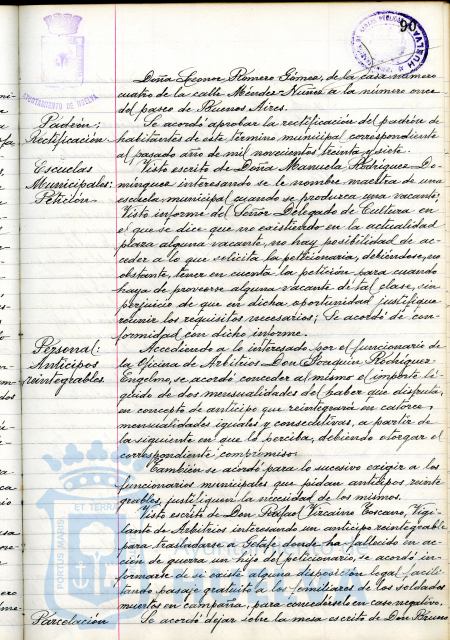 90
AYUNTAMIENTO DE HUELVA
Doña Leonor Romero Gómez, de la casa número
cuatro de la calle Méndez Núñez a la número once
del paseo de Buenos Aires.
Padrón: Se acordó aprobar la rectificación del padrón de
Rectificación. habitantes de este término municipal correspondiente
al pasado año de mil novecientos treinta y siete.
Escuelas Visto escrito de Doña Manuela Rodríguez Do-
Municipales: mínguez interesando se le nombre maestra de una
Petición. escuela municipal cuando se produzca una vacante;
Visto informe del Señor Delegado de Cultura en
el que se dice que no existiendo en la actualidad
plaza alguna vacante, no hay posibilidad de ac-
ceder a lo que solicita la peticionaria, debiéndose, no
obstante, tener en cuenta la petición para cuando
haya de proveerse alguna vacante de tal clase, sin
perjuicio de que en dicha oportunidad justifique
reunir los requisitos necesarios; Se acordó de con-
formidad con dicho informe.
Personal: Accediendo a lo interesado por el funcionario de
Anticipos la Oficina de Arbitrios Don Joaquín Rodríguez
reintegrables. Engelmo, se acordó conceder al mismo el importe lí-
quido de dos mensualidades del haber que disfruta,
en concepto de anticipo que reintegrará en catorce
mensualidades iguales y consecutivas, a partir de
la siguiente en que lo perciba, debiendo otorgar el
correspondiente compromiso.
También se acordó para lo sucesivo exigir a los
funcionarios municipales que pidan anticipos reinte-
grables, justifiquen la necesidad de los mismos.
Visto escrito de Don Rafael Vizcaino Toscano, Vigi-
lante de Arbitrios interesando un anticipo reintegrable
para trasladarse a Getafe donde ha fallecido en ac-
ción de guerra un hijo del peticionario, se acordó in-
formarse de si existe alguna disposición legal facili-
tando pasaje gratuito a los familiares de los soldados
muertos en campaña, para concedérselo en caso negativo.
Parcelación Se acordó dejar sobre la mesa escrito de Don Bruno
PORTUS MARIS ET TERRAE